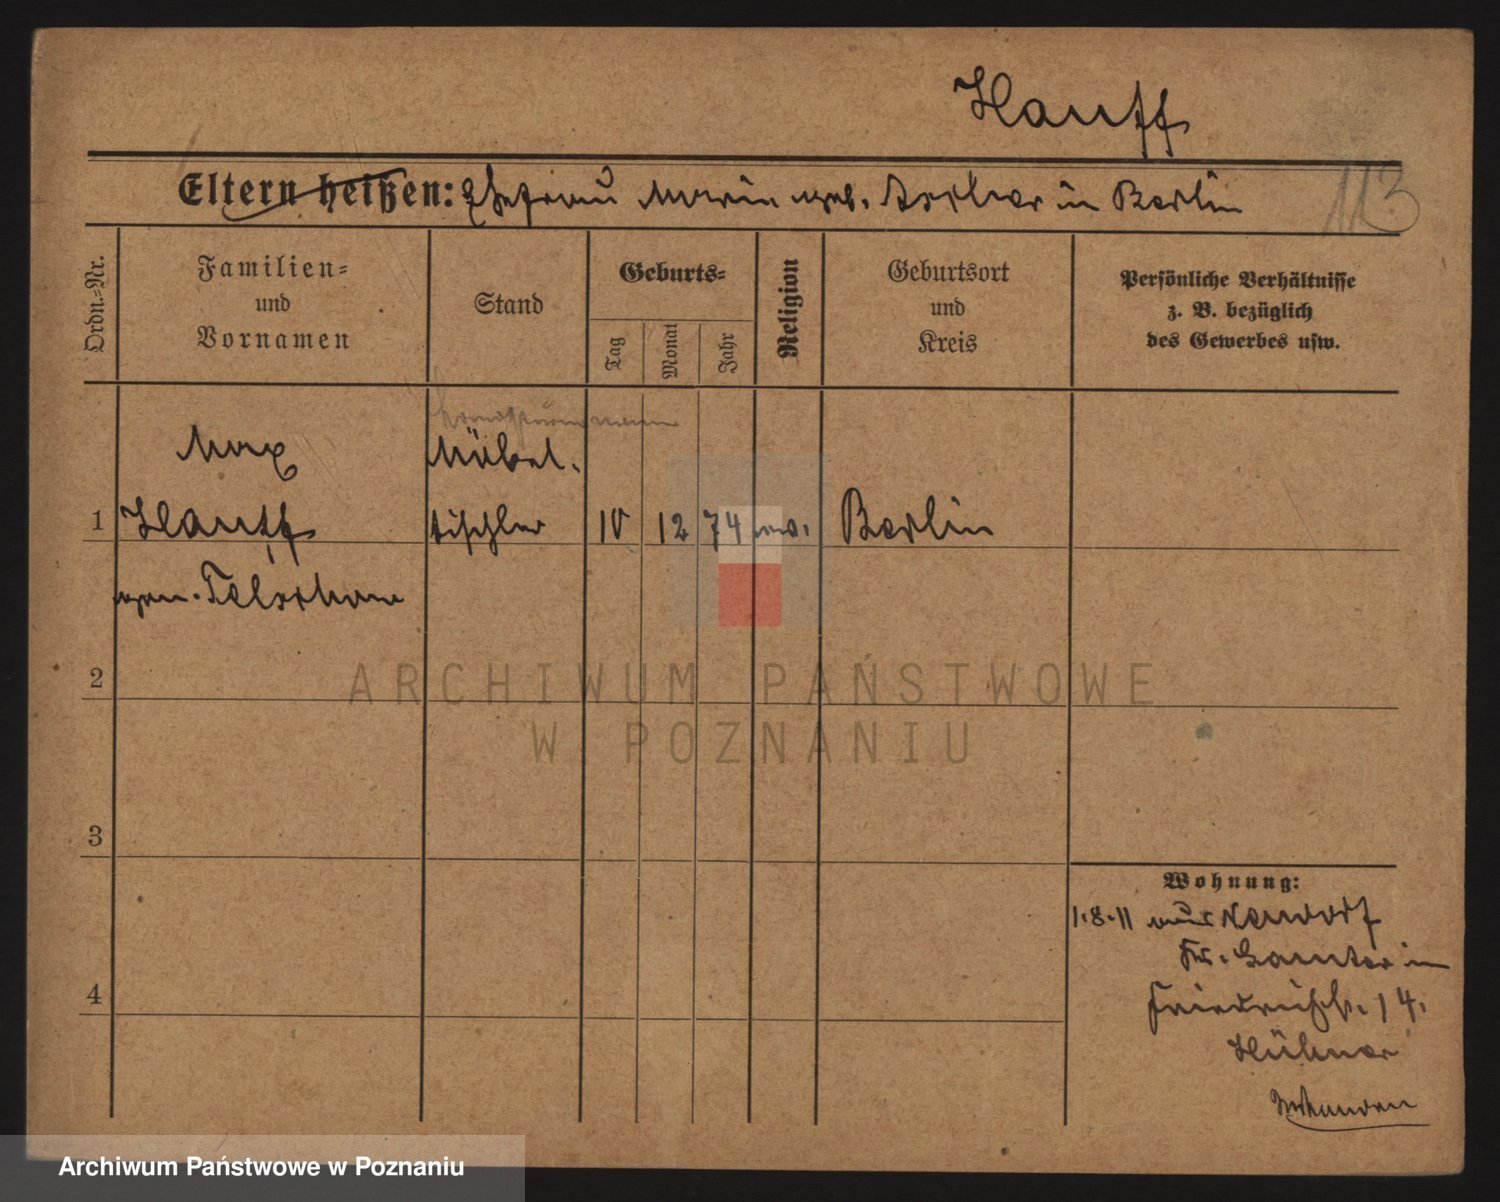 Hauff
113
Eltern heißen: Ehefrau Marie geb. in Berlin
Ordn.-Nr.
Familien-
und
Vornamen
Stand
Geburts-
Tag
Monat
Jahr
Religion
Geburtsort
und
Kreis
Persönliche Verhältnisse
z. B. bezüglich
des Gewerbes usw.
Max
Möbel-
1 Hauff tischler 10 12 74 ev. Berlin
gen.
2
ARCHIWUM PAŃSTWOWE
W POZNANIU
3
4
Wohnung:
1.8.11 aus Neudorf
Kr. Samter in
Friedrichstr. 14.
Hübner
Archiwum Państwowe w Poznaniu